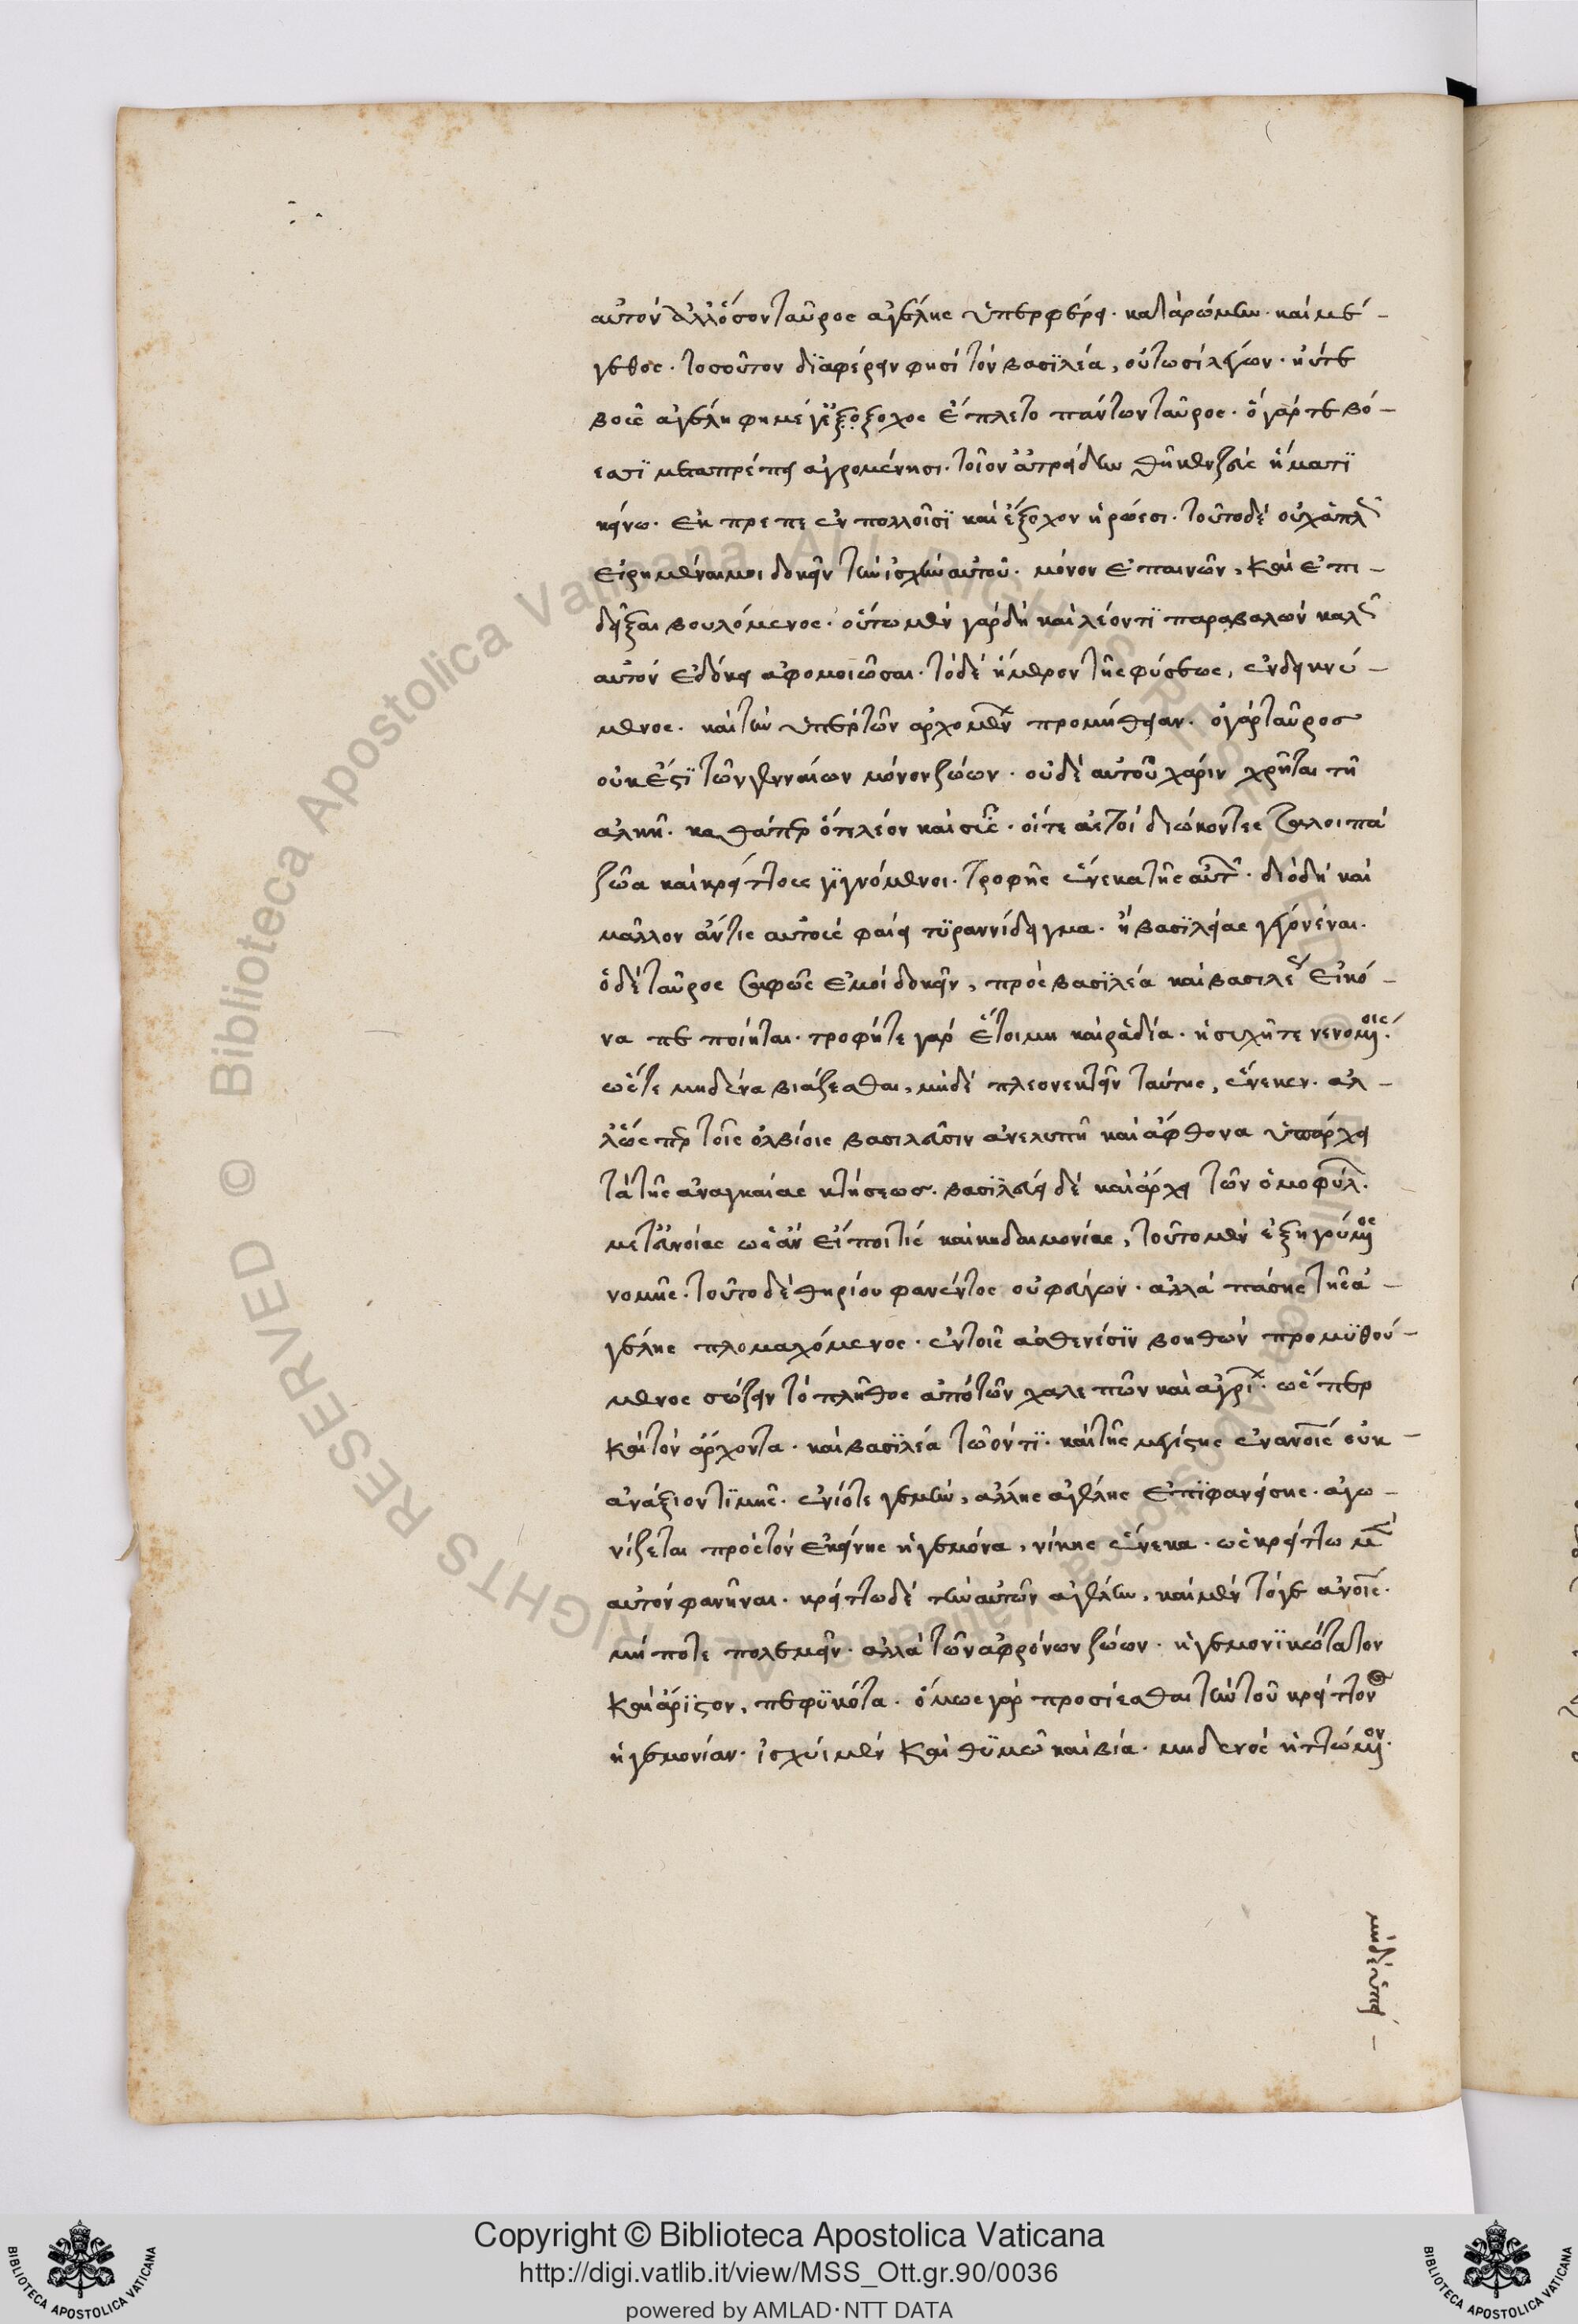 αὐτόν ἀλλ' ὅσον ταῦρος ἀγέλης ὑπερφέρει. κατὰ ρώμην. καὶ μέ-
γεθος. τοσοῦτον δϊαφέρειν φησί τὸν βασϊλέα, οὑτωσὶ λέγων. ἠΰτε
βοῦς ἀγέληφι μέγ' ἔξοχος ἔπλετο πάντων ταῦρος. ὁ γάρ τε βό-
εσσϊ μεταπρέπει ἀγρομένῃσι. τοῖον ἀτρείδην θῆκεν ζεύς ἤματϊ
κείνω. ἐκπρεπε' ἐν πολλοῖσϊ καὶ ἔξοχον ἡρώεσι. τοῦτο δέ οὐχ ἁπλῶς
εἴρηκεν ἐμοι δοκεῖν τὴν ἰσχὺν αὐτοῦ. μόνον ἐπαινῶν, καὶ ἐπι-
δεῖξαι βουλόμενος. οὕτω μέν γάρ δή καὶ λέοντϊ παραβαλών καλῶς
αὐτόν ἐδόκει ἀφομοιῶσαι. τὸ δέ ἥμερον τῆς φύσεως, ἐνδεικνύ-
μενος. καὶ τὴν ὑπέρ τῶν ἀρχομένων προμήθειαν. ὁ γάρ ταῦρος
οὐκ ἔστϊ τῶν γενναίων μόνον ζώων. οὐδὲ αὑτοῦ χάριν χρῆται τῆ
ἀλκῆ. καθάπερ ὅ τε λέον καὶ σῦς. οἵ τε ἀετοί διώκοντες τὰ λοιπά
ζῶα καὶ κρείττους γϊγνόμενοι. τροφῆς ἕνεκα τῆς αὑτῶν. διό δή καὶ
μᾶλλον ἄν τις αὐτούς φαίη τϋραννίδειγμα. ἢ βασϊλείας γεγονέναι.
ὁ δέ ταῦρος σαφῶς ἐμοί δοκεῖν, πρὸς βασϊλέα καὶ βασιλέως εἰκό-
να πεποίηται. τροφή τε γάρ ἑτοίμη καὶ ῥαδία. ἡσυχῆ τε νεμόμενος.
ὥστε μηδένα βιάζεσθαι, μηδέ πλεονεκτεῖν ταύτης, ἕνεκεν. ἀλ-
λ' ὥσπερ τοῖς ὀλβίοις βασιλεῦσιν ἀνελιπῆ καὶ ἄφθονα ὑπάρχει
τὰ τῆς ἀναγκαίας κτήσεως. βασϊλεύει δέ καὶ ἄρχει τῶν ὁμοφύλων.
μετ' εὐνοίας ὡς ἄν εἴποι τίς καὶ κηδαιμονίας, τοῦτο μέν ἐξηγούμενος
νομῆς. τοῦτο δέ θηρίου φανέντος οὐ φεύγων. ἀλλά πάσης τῆς ἀ-
γέλης προμαχόμενος. ἐν τοῖς ἀσθενέσϊν βοηθῶν προμϋθού-
μενος σώζειν τό πλῆθος ἀπό τῶν χαλεπῶν καὶ ἀγρίων. ὥσπερ
καὶ τὸν ἄρχοντα. καὶ βασϊλέα τῶ ὄντϊ. καὶ τῆς μεγίστης ἐν ἀνοις οὐκ
ἀνάξιον τϊμῆς. ἐνίοτε γεμὴν, ἄλλης ἀγέλης ἐπϊφανείσης. ἀγω-
νίζεται πρὸς τόν ἐκείνης ἡγεμόνα, νίκης ἕνεκα. ὡς κρείττω μὲν
αὐτόν φανῆναι. κρείττω δέ τὴν αὐτῶν ἀγέλην, καὶ μέν τόγε ἀνοις.
μή ποτε πολεμεῖν. ἀλλὰ τῶν ἀφρόνων ζώων. ἡγεμονϊκώτατον
καὶ ἄρϊστον, πεφϋκότα. ὅμως γάρ προσίεσθαι τὴν τοῦ κρείττονος
ἡγεμονίαν. ἰσχύϊ μέν καὶ θϋμῶ καὶ βία. μηδενός ἡττώμενον.
μηδὲ ὑπεί-
Copyright © Biblioteca Apostolica Vaticana
http://digi.vatlib.it/view/MSS_Ott.gr.90/0036
powered by AMLAD·NTT DATA